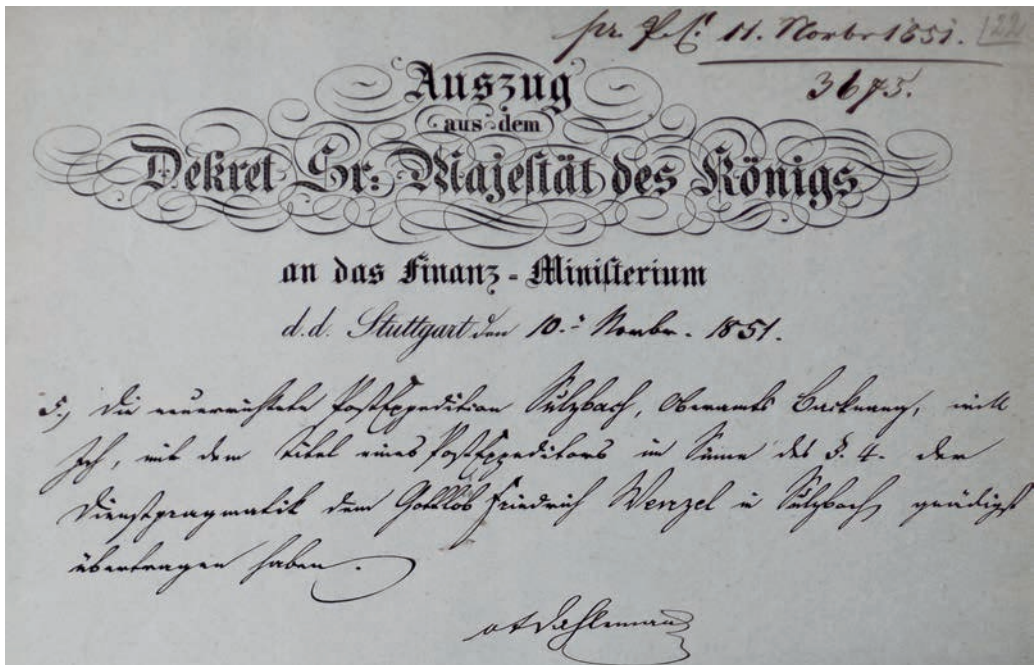 pr. P.C. 11. Novbr 1851. 122
3675.
Auszug
aus dem
Dekret Sr: Majestät des Königs
an das Finanz-Ministerium
d.d. Stuttgart den 10. Novbr. 1851.
5., Die neuerrichtete PostExpedition Sulzbach, Oberamts Backnang, will
Ich, mit dem Titel eines PostExpeditors im Sinne des §. 4. der
Dienstpragmatik dem Gottlob Friedrich Wenzel in Sulzbach gnädigst
übertragen haben.